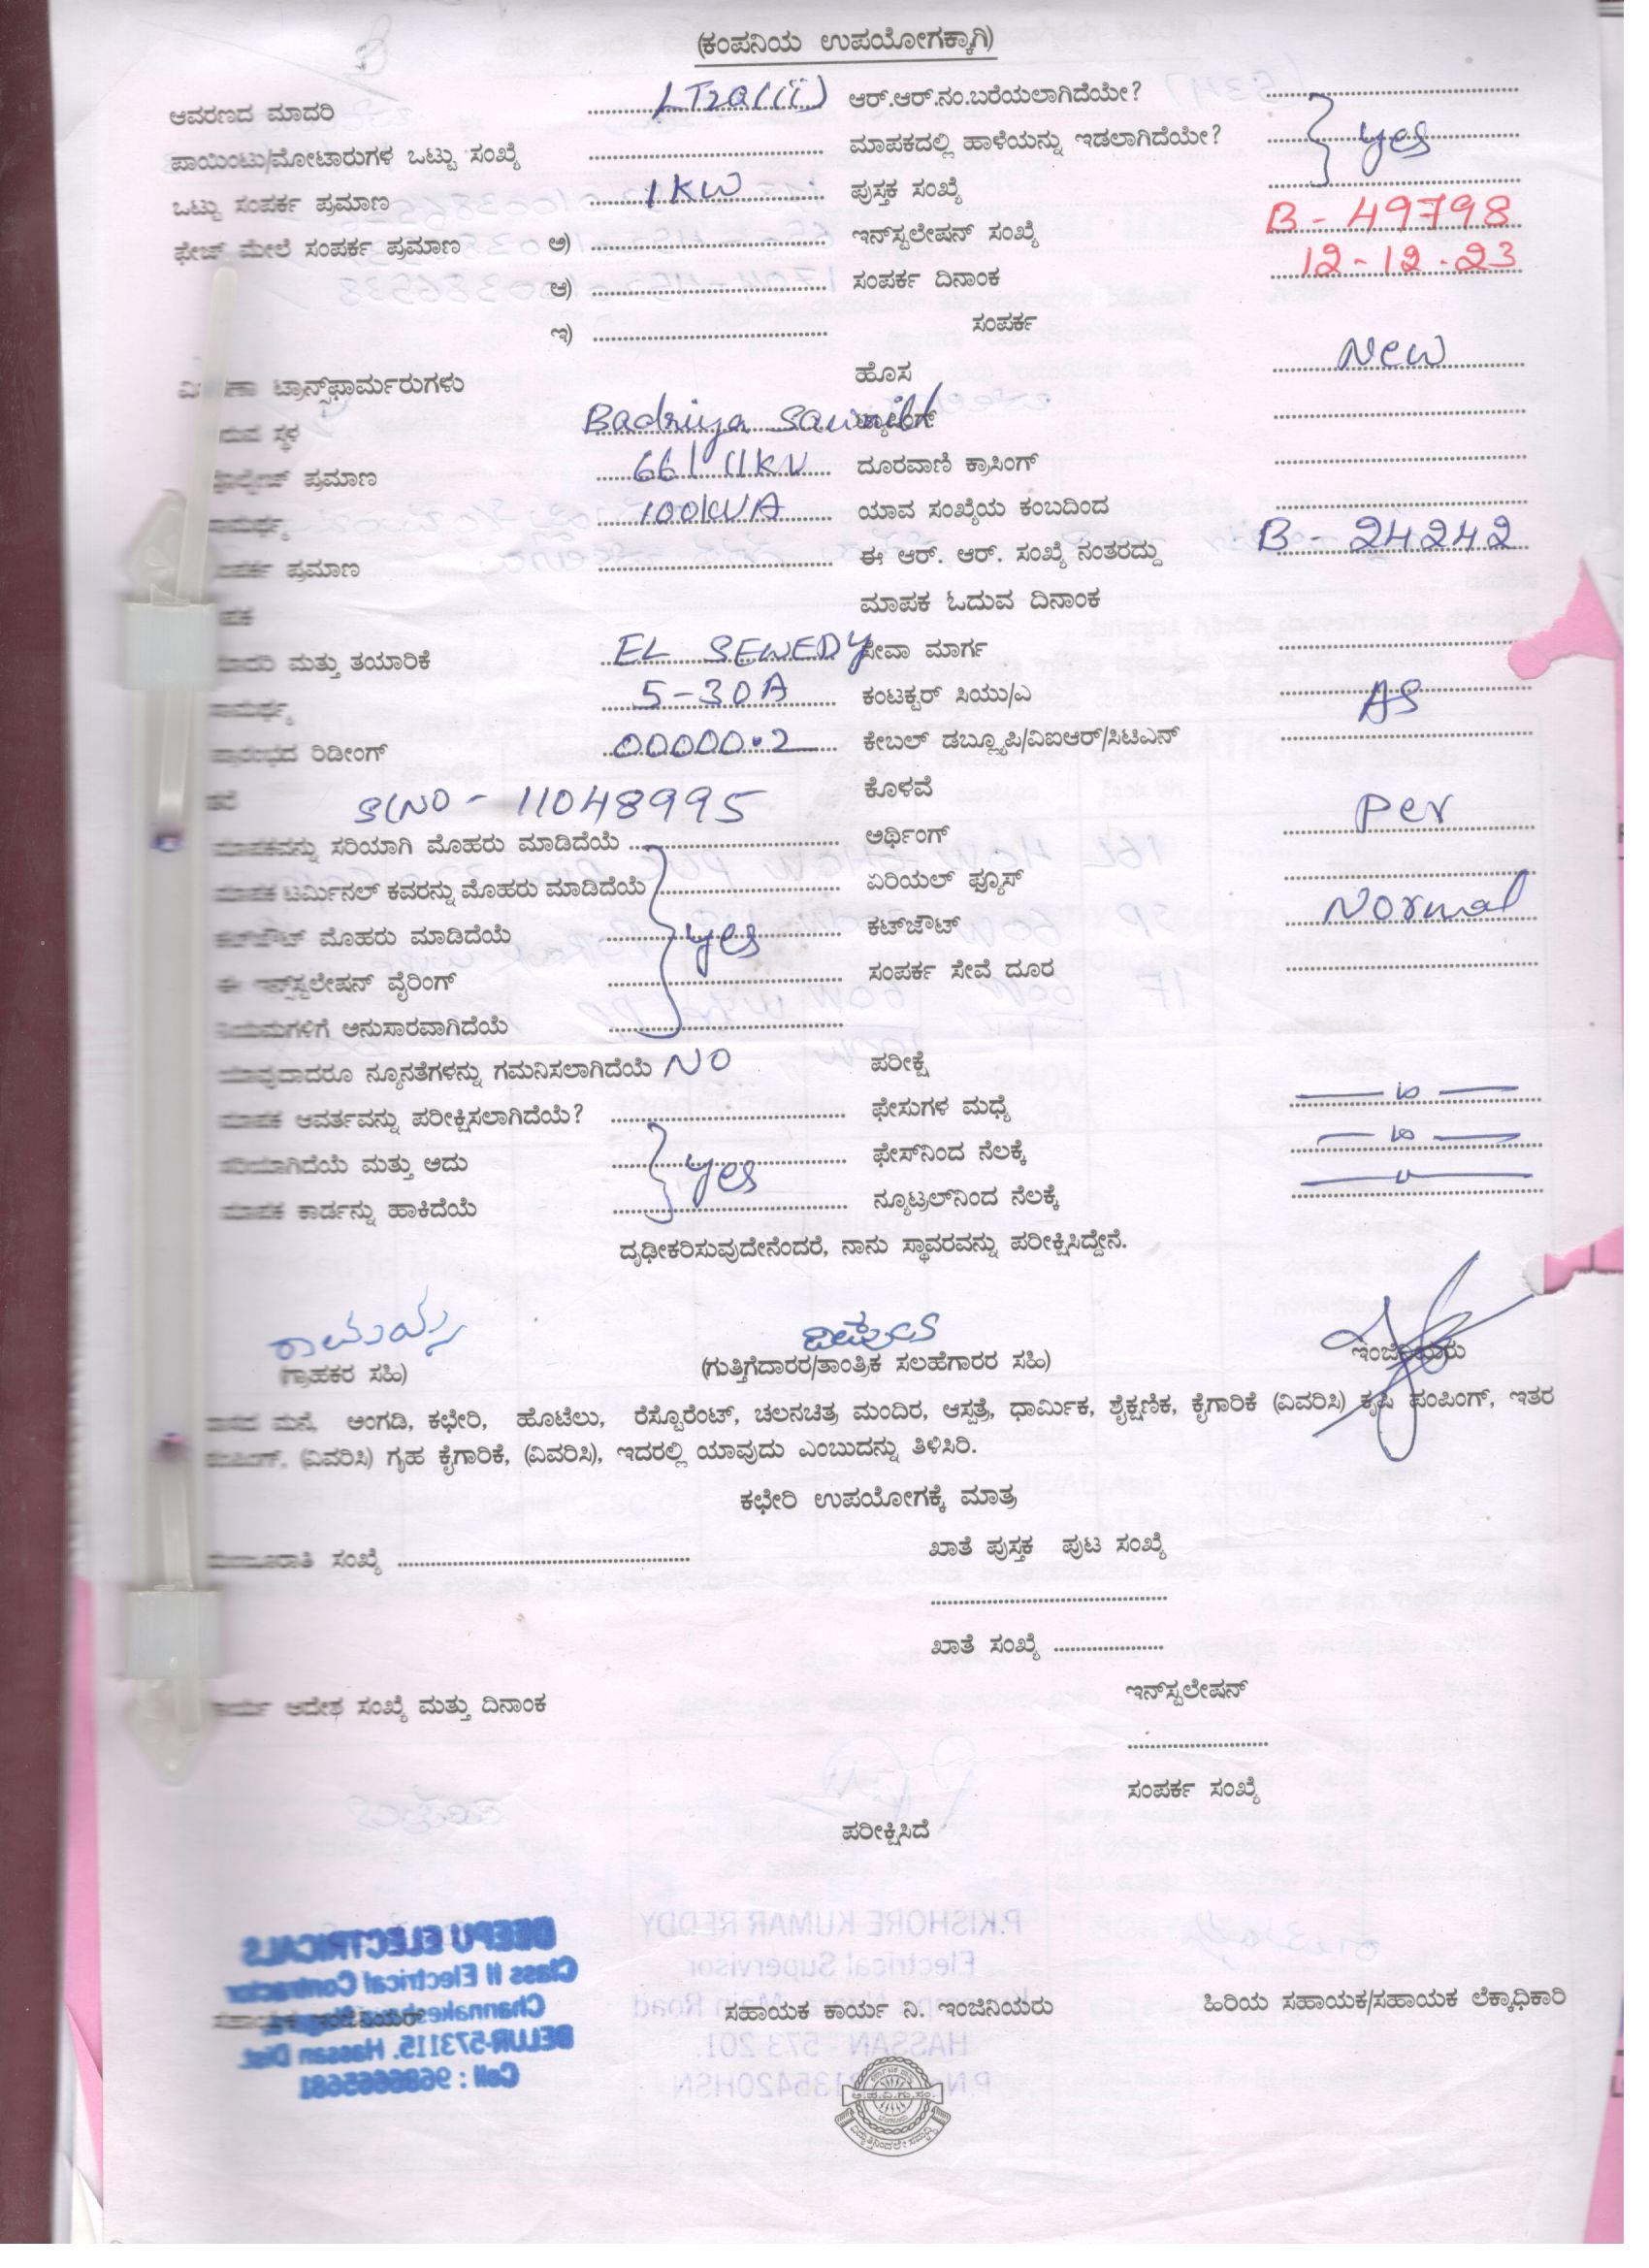 (ಕಂಪನಿಯ ಉಪಯೋಗಕ್ಕಾಗಿ)
ಆವರಣದ ಮಾದರಿ ........ ಆರ್.ಆರ್.ನಂ.ಬರೆಯಲಾಗಿದೆಯೇ? ........
ಪಾಯಿಂಟು/ಮೋಟಾರುಗಳ ಒಟ್ಟು ಸಂಖ್ಯೆ ........ ಮಾಪಕದಲ್ಲಿ ಹಾಳೆಯನ್ನು ಇಡಲಾಗಿದೆಯೇ? } yes
ಒಟ್ಟು ಸಂಪರ್ಕ ಪ್ರಮಾಣ 1KW ಪುಸ್ತಕ ಸಂಖ್ಯೆ ........
ಫೇಜ್ ಮೇಲೆ ಸಂಪರ್ಕ ಪ್ರಮಾಣ ಅ) ........ ಇನ್‌ಸ್ಟಲೇಷನ್ ಸಂಖ್ಯೆ B - 49798
ಆ) ........ ಸಂಪರ್ಕ ದಿನಾಂಕ 12-12-23
ಇ) ........ ಸಂಪರ್ಕ
ಟ್ರಾನ್ಸ್‌ಫಾರ್ಮರುಗಳು ಹೊಸ New
ಸ್ಥಳ Badriya ........
ಪ್ರಮಾಣ 66/11KV ದೂರವಾಣಿ ಕ್ರಾಸಿಂಗ್ ........
100KVA ಯಾವ ಸಂಖ್ಯೆಯ ಕಂಬದಿಂದ ........
ಪ್ರಮಾಣ ........ ಈ ಆರ್. ಆರ್. ಸಂಖ್ಯೆ ನಂತರದ್ದು B - 24242
ಮಾಪಕ ಓದುವ ದಿನಾಂಕ
ಮತ್ತು ತಯಾರಿಕೆ EL SEWEDY ಸೇವಾ ಮಾರ್ಗ ........
5-30A ಕಂಟಕ್ಟರ್ ಸಿಯು/ಎ AS
ರಿಡೀಂಗ್ 00000.2 ಕೇಬಲ್ ಡಬ್ಲ್ಯೂಪಿ/ವಿಐಆರ್/ಸಿಟಿಎನ್ ........
SlNO - 11048995 ಕೊಳವೆ
ಮಾಪಕವನ್ನು ಸರಿಯಾಗಿ ಮೊಹರು ಮಾಡಿದೆಯೆ ........ ಅರ್ಥಿಂಗ್ Per
ಮಾಪಕ ಟರ್ಮಿನಲ್ ಕವರನ್ನು ಮೊಹರು ಮಾಡಿದೆಯೆ ........ ಏರಿಯಲ್ ಫ್ಯೂಸ್ ........
ಕಟ್‌ಔಟ್ ಮೊಹರು ಮಾಡಿದೆಯೆ } yes ಕಟ್‌ಔಟ್ Normal
ಈ ಇನ್‌ಸ್ಟಲೇಷನ್ ವೈರಿಂಗ್ ........ ಸಂಪರ್ಕ ಸೇವೆ ದೂರ ........
ನಿಯಮಗಳಿಗೆ ಅನುಸಾರವಾಗಿದೆಯೆ ........
ಯಾವುದಾದರೂ ನ್ಯೂನತೆಗಳನ್ನು ಗಮನಿಸಲಾಗಿದೆಯೆ NO ಪರೀಕ್ಷೆ
ಮಾಪಕ ಆವರ್ತವನ್ನು ಪರೀಕ್ಷಿಸಲಾಗಿದೆಯೆ? ........ ಫೇಸುಗಳ ಮಧ್ಯೆ
ಸರಿಯಾಗಿದೆಯೆ ಮತ್ತು ಅದು } yes ಫೇಸ್‌ನಿಂದ ನೆಲಕ್ಕೆ
ಮಾಪಕ ಕಾರ್ಡನ್ನು ಹಾಕಿದೆಯೆ ........ ನ್ಯೂಟ್ರಲ್‌ನಿಂದ ನೆಲಕ್ಕೆ
ದೃಢೀಕರಿಸುವುದೇನೆಂದರೆ, ನಾನು ಸ್ಥಾವರವನ್ನು ಪರೀಕ್ಷಿಸಿದ್ದೇನೆ.
(ಗ್ರಾಹಕರ ಸಹಿ) (ಗುತ್ತಿಗೆದಾರರ/ತಾಂತ್ರಿಕ ಸಲಹೆಗಾರರ ಸಹಿ) ಇಂಜಿನಿಯರು
ವಾಸದ ಮನೆ, ಅಂಗಡಿ, ಕಛೇರಿ, ಹೊಟೆಲು, ರೆಸ್ಟೊರೆಂಟ್, ಚಲನಚಿತ್ರ ಮಂದಿರ, ಆಸ್ಪತ್ರೆ, ಧಾರ್ಮಿಕ, ಶೈಕ್ಷಣಿಕ, ಕೈಗಾರಿಕೆ (ವಿವರಿಸಿ) ಕೃಷಿ ಪಂಪಿಂಗ್, ಇತರ
ಪಂಪಿಂಗ್, (ವಿವರಿಸಿ) ಗೃಹ ಕೈಗಾರಿಕೆ, (ವಿವರಿಸಿ), ಇದರಲ್ಲಿ ಯಾವುದು ಎಂಬುದನ್ನು ತಿಳಿಸಿರಿ.
ಕಛೇರಿ ಉಪಯೋಗಕ್ಕೆ ಮಾತ್ರ
ಮಂಜೂರಾತಿ ಸಂಖ್ಯೆ ........ ಖಾತೆ ಪುಸ್ತಕ ಪುಟ ಸಂಖ್ಯೆ
........
ಖಾತೆ ಸಂಖ್ಯೆ ........
ಇನ್‌ಸ್ಟಲೇಷನ್
ಆದೇಶ ಸಂಖ್ಯೆ ಮತ್ತು ದಿನಾಂಕ
........
ಸಂಪರ್ಕ ಸಂಖ್ಯೆ
ಪರೀಕ್ಷಿಸಿದೆ
DEEPU ELECTRICALS
Class II Electrical Contractor
BELUR-573115. Hassan Dist.
Cell : 9686665681
P.KISHORE KUMAR REDDY
Electrical Supervisor
Main Road
HASSAN - 573 201.
ಸಹಾಯಕ ಕಾರ್ಯ ನಿ. ಇಂಜಿನಿಯರು ಹಿರಿಯ ಸಹಾಯಕ/ಸಹಾಯಕ ಲೆಕ್ಕಾಧಿಕಾರಿ